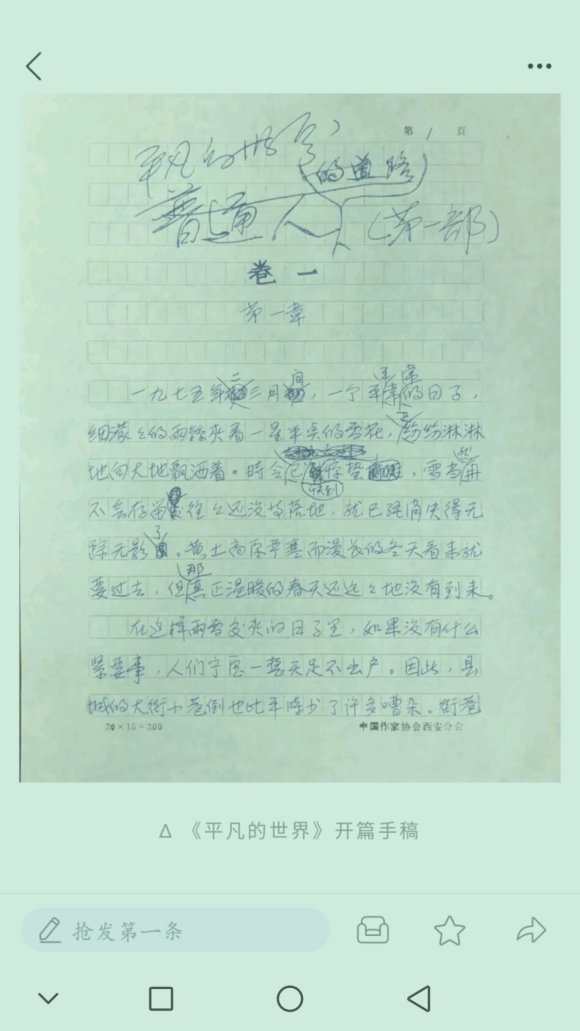 第 1 頁
平凡的世界
的道路
普通人(第一部)
卷一
第一章
二 间 平常
一九七五年三月,一个平常的日子,
细濛々的雨丝夹着一星半点的雪花,正纷纷淋淋
地向大地飘洒着。时令已快到惊蛰,雪当然再
不会存留,往々还没等落地,就已经消失得无
踪无影了。黄土高原严寒而漫长的冬天看来就
要过去,但那真正温暖的春天还远々地没有到来。
在这样雨雪交夹的日子里,如果没有什么
紧要事,人们宁愿一整天足不出户。因此,县
城的大街小巷倒也比平时少了许多嘈杂。街巷
20×15=300 中国作家协会西安分会
△ 《平凡的世界》开篇手稿
抢发第一条